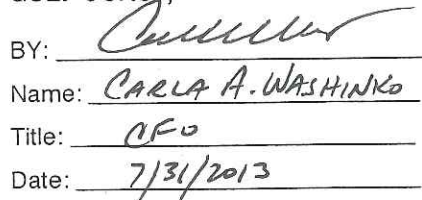 BY:
Name: CARLA A. WASHINKO
Title: CFO
Date: 7/31/2013